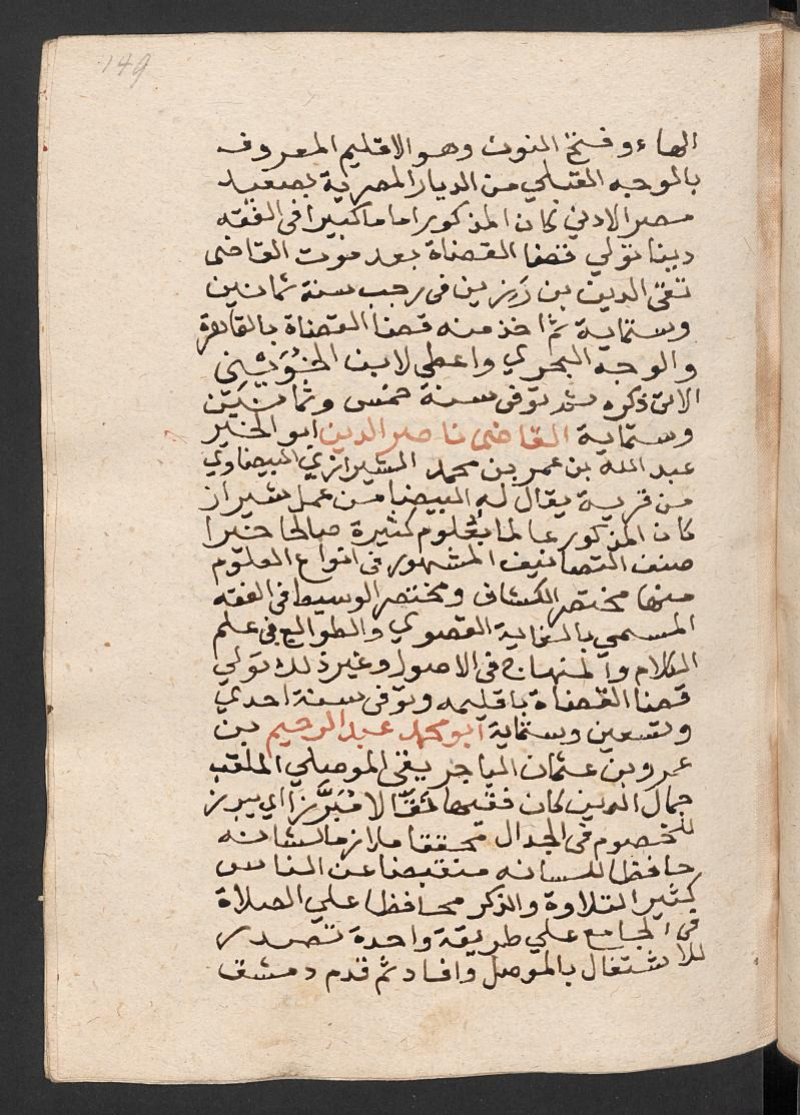 149
الهاء وفتح النون وهو الاقليم المعروف
بالوجه القبلي من الديار المصرية بصعيد
مصر الادني كان المذكور اماما كبيرا في الفقه
دينا تولي قضا القضاة بعد موت القاضي
تقي الدين بن رزين في رجب سنة ثمانين
وستماية ثم اخذ منه قضا القضاة بالقاهرة
والوجه البحري واعطي لابن الخُوَيّي
الاتي ذكره ثم توفي سنة خمس وثمانين
وستماية القاضي ناصر الدين ابو الخير
عبد الله بن عمر بن محمد الشيرازي البيضاوي
من قرية يقال له البيضا من عمل شيراز
كان المذكور عالما بعلوم كثيرة صالحا خيرا
صنف التصانيف المشهور في انواع العلوم
منها مختصر الكشاف ومختصر الوسيط في الفقه
المسمي بالغاية القصوي والطوالع في علم
الكلام والمنهاج في الاصول وغير ذلك تولي
قضا القضاة باقليمه وتوفي سنة احدي
وتسعين وستماية ابو محمد عبد الرحيم بن
عمرو بن عثمان الباجريقي الموصلي الملقب
جمال الدين كان فقيها نقّالا مُبَرِّزا اي يبرز
للخصوم في الجدال محققا ملازما لشانه
حافظا للسانه منقبضا عن الناس
كثير التلاوة والذكر محافظا علي الصلاة
في الجامع علي طريقة واحدة تصدر
للاشتغال بالموصل وافاد ثم قدم دمشق